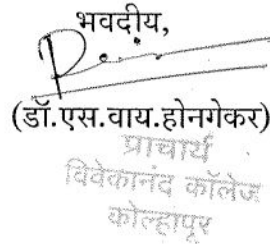 भवदीय,
(डॉ.एस.वाय.होनगेकर)
प्राचार्य
विवेकानंद कॉलेज
कोल्हापूर